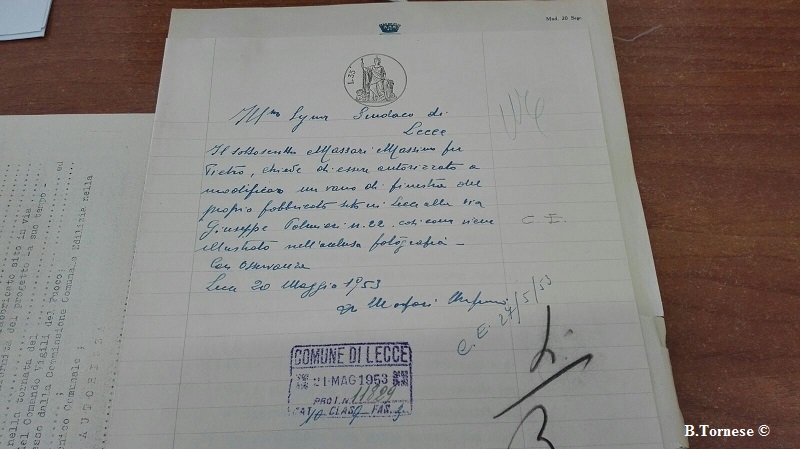 Mod. 30 Segr.
L.35
Ill.mo Signor Sindaco di
Lecce
Il sottoscritto Massari Massimo fu
Pietro, chiede di essere autorizzato a
modificare un vano di finestra del
proprio fabbricato sito in Lecce alla via
Giuseppe Palmieri n. 22, così come viene
illustrato nell'acclusa fotografia –
Con Osservanza
Lecce 20 Maggio 1953
C. E.
C. E. 27/5/53
COMUNE DI LECCE
21 MAG 1953
PROT. N.
CAT. CLAS. FAS.
fabbricato sito in Via
del progetto la suo tempo
nella tornata del
del Comando Vigili del Fuoco;
dalla Commissione Comunale Edilizia nella
Comunale ;
A U T O R I Z
B.Tornese ©